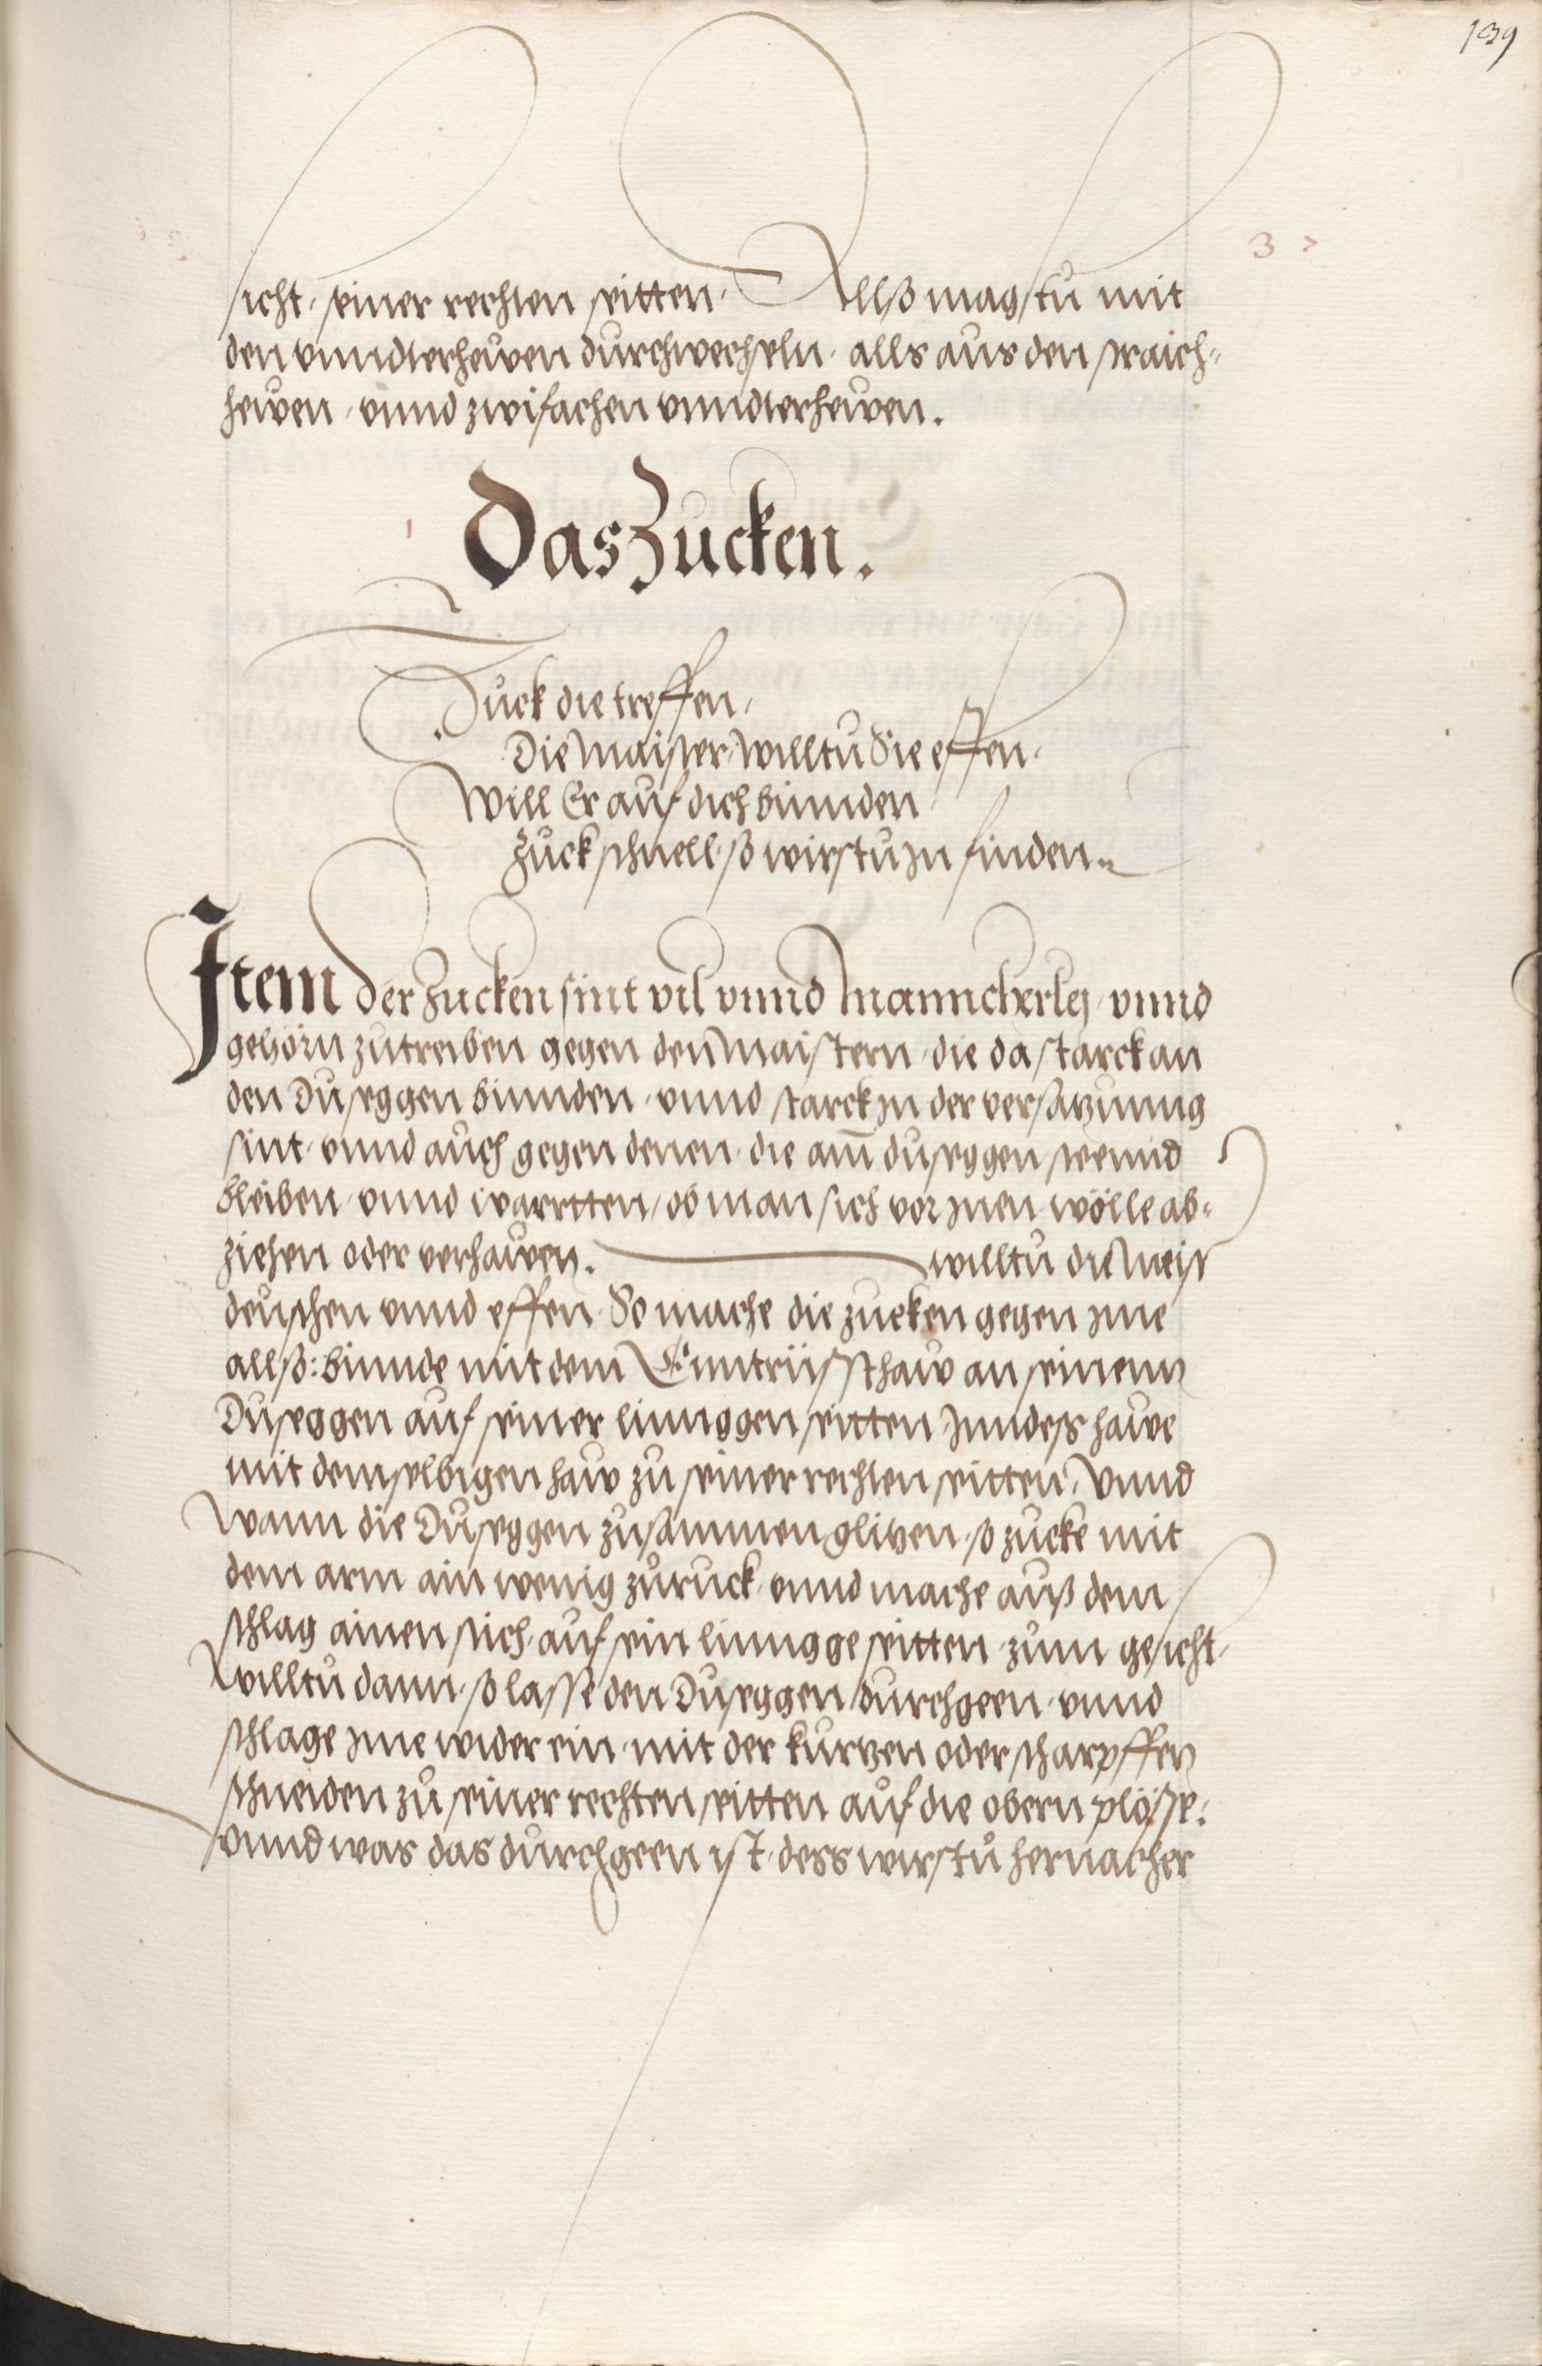 139
3
sicht, seiner rechten seitten, Allß magstu mit
den vnndterhewen durchwechseln, alls aus den straich-
hewen, vnnd zwifachen vnndterhewen.
Das Zucken.
Zuck die treffen,
Die Maister, willtu Sie effen.
Will Er auf dich binnden
Zuck schnell, so wirstu jn finden.
Item der Zucken sint vil vnnd manncherley, vnnd
gehörn zutreiben gegen den Maistern, die da starck an
den Duseggen binnden, vnnd starck jn der versazunng
sint, vnnd auch gegen denen, die am̄ duseggen steennd
bleiben, vnnd wartten, ob man sich vor jnen wölle ab-
ziehen oder verhawen. willtu die Meist
deuschen vnnd effen, So mache die zucken gegen jme
allß: binnde mit dem Enntrüsthaw an seinem
Duseggen auf seiner linnggen seitten, Inndess hawe
mit demselbigen haw zu seiner rechten seitten, Vnnd
wann die Duseggen zusammen glizen, so zucke mit
dem arm ain wenig zuruck, vnnd mache auß dem
schlag ainen stich, auf sein linngge seitten, zum gesicht,
willtu dann, so lasse den Duseggen durchgeen, vnnd
schlage jme wider ein, mit der kurzen oder scharpffen
schneiden zu seiner rechten seitten auf die obern plösse:
vnnd was das durchgeen ist, dess wirstu hernacher